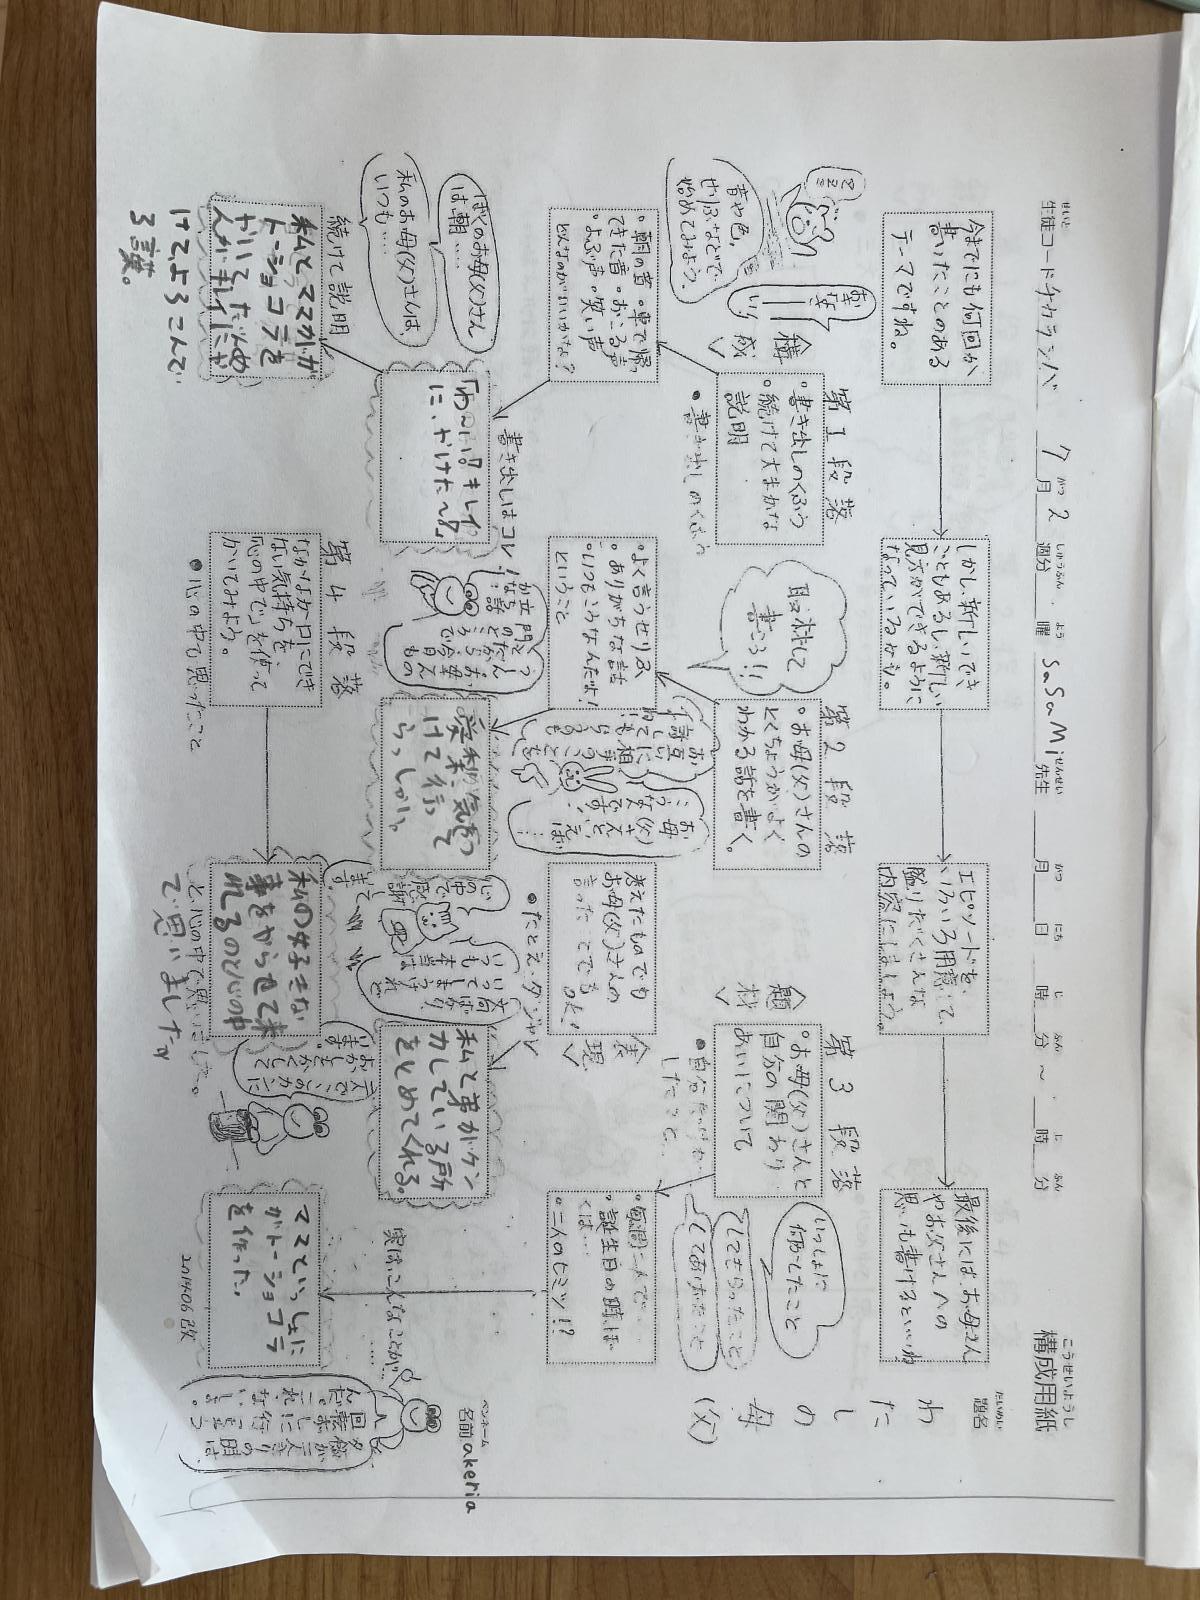 こうせいようし
構成用紙
だいめい
題名
わたしの母(父)
ペンネーム
名前 akeria
せいと
生徒コード ナカラシバ 7月2週分 曜 SaSaMi先生 月 日 時 分 ～ 時 分
今までにも何回か
書いたことのある
テーマですね。
しかし、新しいでき
ごともあるし、新しい
見方ができるように
なっているかも。
エピソードを、
いろいろ用意して、
盛りだくさんな
内容にしましょう。
最後にはお母さん
やお父さんへの
思いも書けるといいね
第1段落
・書き出しのくふう
・続けて大まかな
説明
●書き出しのくふう
＜構成＞
音や色、
せりふなどで
始めてみよう。
・朝の音・車で帰っ
てきた音・おこる声
・よぶ声・笑い声
どんなのがいいかな？
書き出しはコレ！
「わ～い！？キレイ
に、かけた～！？」
ぼくのお母(父)さん
は、朝……
私のお母(父)さんは、
いつも…
続けて説明
私とママが、ガ
トーショコラを
んがキレイにか
けて、よろこんで
る議。
第2段落
・お母(父)さんの
とくちょうがよく
わかる話を書く。
取材して
書こう！！
・よく言うせりふ
・ありがちな話
・いつもこうなんだよ！
ということ
お母(父)さんといえば
こうなんです、
愛利、気をつ
けて行って
らっしゃい。
第3段落
・お母(父)さんと
自分の関わり
あいについて
＜題材＞
●自分だったら
したこと。
いっしょに
何かしたこと
してもらったこと
してあげたこと
・毎週二人で…
・誕生日の時ぼ
くは…
・二人のヒミツ！？
ママといっしょに
ガトーショコラ
を作った。
実は、こんなことが…
考えたものでも
お母(父)さんの
言ったことでも
OK！
＜表現＞
●たとえ・ダジャレ
私と弟がケン
カしている所
をとめてくれる。
第4段落
なかなか口にでき
ない気持ちを、
「心の中で」を使って
かいてみよう。
●心の中で思ったこと
私の好きな
事をやらせて来
れるのと心の中
で思いましたか
と心の中で思いました。
いつも
文句ばかり
いってしまうけれど
本当は
心の中で
感謝して
います。
201406改